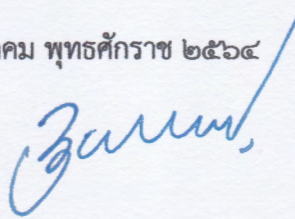 คม พุทธศักราช ๒๕๖๔